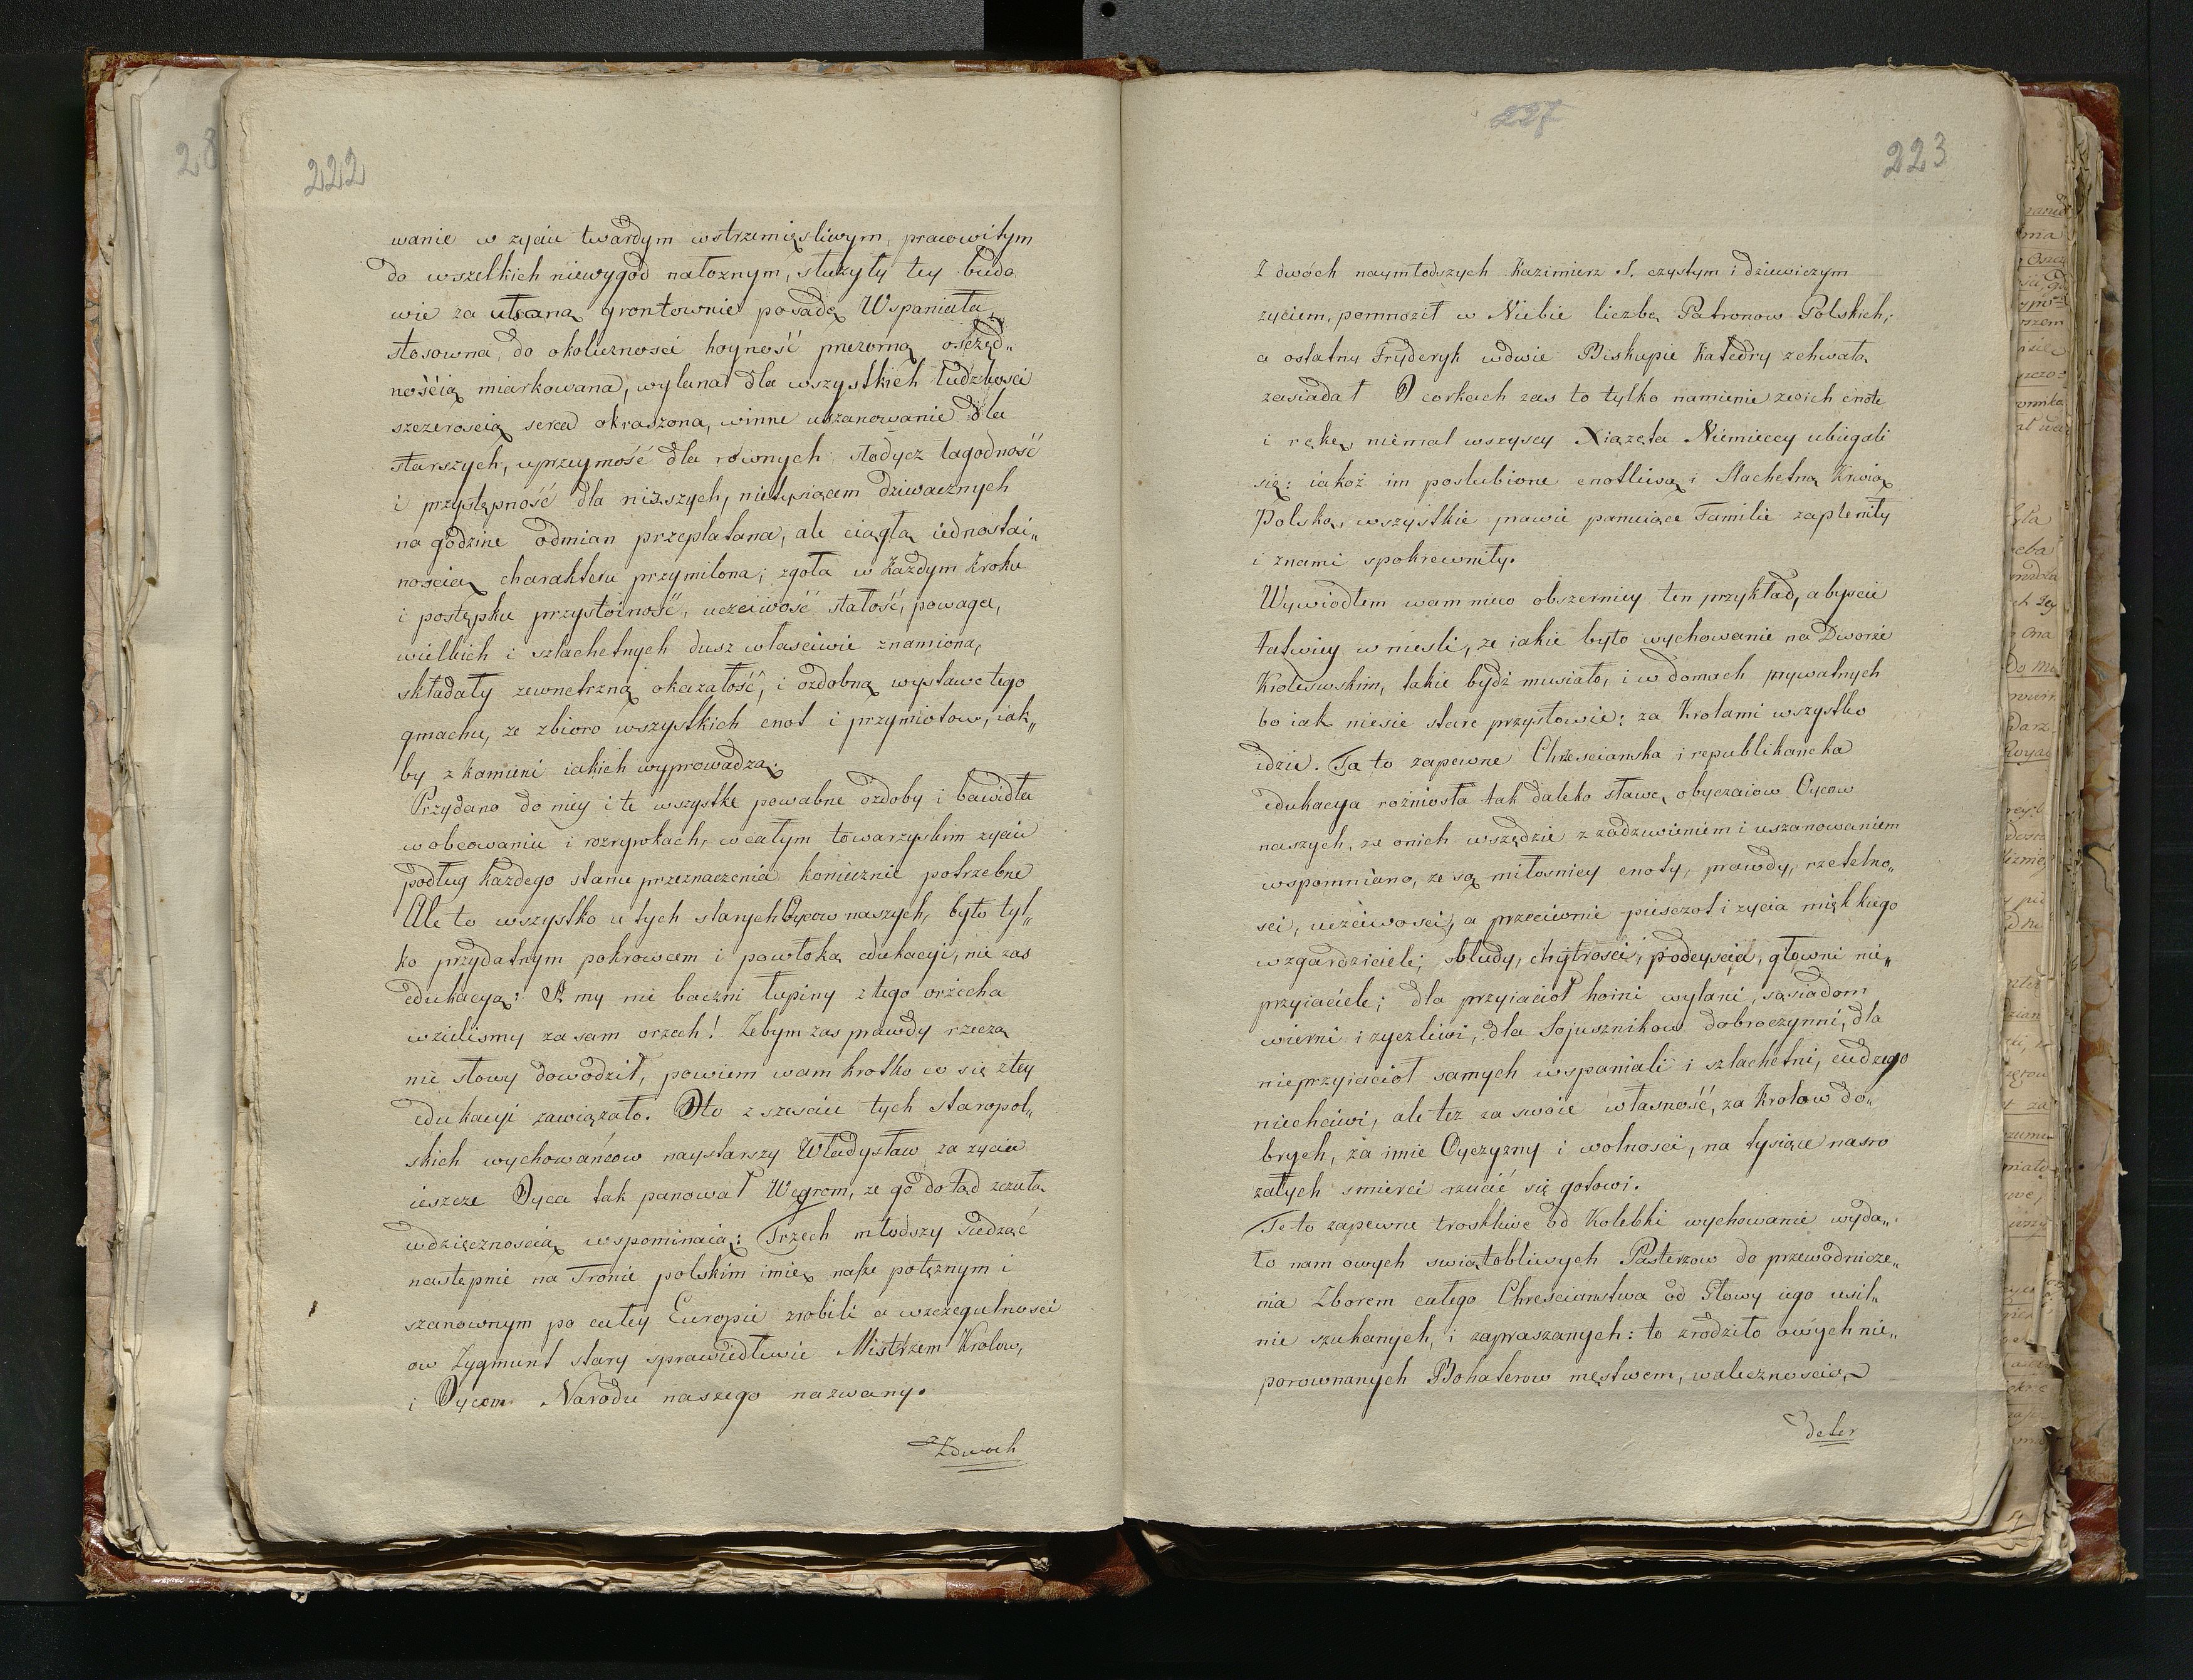 222
wanie w zyciu twardym wstrzemięzliwym, pracowitym
do wszelkich niewygod nałoznym, służyły tey budo
wie za utraną grontownie posadę Wspaniała,
stosowna, do okoliczności hoyność przezorną oszczęd„
nością miarkowana, wylana dla wszystkich ludzkosci
szczeroscią serca okraszona, winne uszanowanie dla
starszych, uprzeymość dla rownych, słodycz łagodność
i przystępność dla niższych, nietysiącem dziwacznych
na godzine odmian przeplatana, ale ciągłą iednostai„
noscią charakteru przymilona; zgoła w każdym kroku
i postępku przystoiność, uczciwość stałość, powaga,
wielkich i szlachetnych dusz właściwe znamiona,
składały zewnetrzną okazałość, i ozdobną wystawe tego
gmachu, ze zbioro wszystkich cnot i przymiotow, iak„
by z kamieni iakich wyprowadzą.
Przydano do niey i te wszystke powabne ozdoby i bawidła
w obcowaniu i rozrywkach, w całym towarzyskim zyciu
podług każdego stanu przeznaczenia koniecznie potrzebne
Ale to wszystko u tych starych Oycow naszych, było tyl„
ko przydatnym pokrowcem i powłoką edukacyi, nie zas
edukacyą: A my nie baczni łupiny z tego orzecha
wzielismy za sam orzech! Zebym zas prawdy rzeczą
nie słowy dowodził, powiem wam krotko co się z tey
edukacyi zawiązało. Oto z szesciu tych staropol„
skich wychowańcow naystarszy Władysław za zycia
ieszcze Oyca tak panował Węgrom, ze go dotąd zczułą
wdzięcznoscią wspominaią: Trzech młodszy siedząć
nastepnie na Tronie polskim imię nasze potężnym i
szanownym po całey Europie zrobili a wszczegulnosci
ow Zygmunt stary sprawiedliwie Mistrzem Krolow,
i Oycem Narodu naszego nazwany.
Z dwoch
227
223
Z dwóch naymłodszych Kazimierz S. czystym i dziewiczym
zyciem, pomnożił w Niebie liczbę Patronow Polskich;
a ostatny Fryderyk wdwie Biskupie Katedry zchwałą
zasiadał O corkach zas to tylko namienie ze o ich cnote
i rękę, niemal wszyscy Xiązęta Niemieccy ubiegali
się: iakoż im poslubione cnotliwą i slachetną krwią
Polską, wszystkie prawie panuiące Familie zaplenity
i znami spokrewnity.
Wywiodłem wam nieco obszerniey ten przykład, abyscie
łatwiey wniesli, ze iakie było wychowanie na Dworze
Krolewskim, takie bydź musiało, i w domach prywatnych
bo iak niesie stare przysłowie: za Krolami wszystko
idzie. Ta to zapewne Chrzescianska i republikancka
edukacya rozniosła tak daleko sławę, obyczaiow Oycow
naszych, ze o nich wszędzie z zadziwieniem i uszanowaniem
wspomniano, ze są miłosnicy cnoty, prawdy, rzetelno„
sci, uczciwosci, a przeciwnie pieszczot i zycia miękkiego
wzgardziciele; obłudy, chytrosci, podeyscia, głowni nie„
przyiaciele; dla przyiacioł hoini wylani, sąsiadom
wierni i zyczliwi, dla Sojusznikow dobroczynni, dla
nieprzyiacioł samych wspaniali i szlachetni, cudzego
niechciwi, ale tez za swoie własność, za Krolow do„
brych, za imie Oyczyzny i wolnosci, na tysiące nasro
załych smierci rzucić się gotowi.
Te to zapewne troskliwe od Kolebki wychowanie wyda„
ło nam owych swiątobliwych Pasterzow do przewodnicze„
nia Zborem całego Chrescianstwa od Głowy iego usil„
nie szukanych, i zapraszanych: to zrodziło owych nie„
porownanych Bohaterow męstwem, walecznoscią
deter